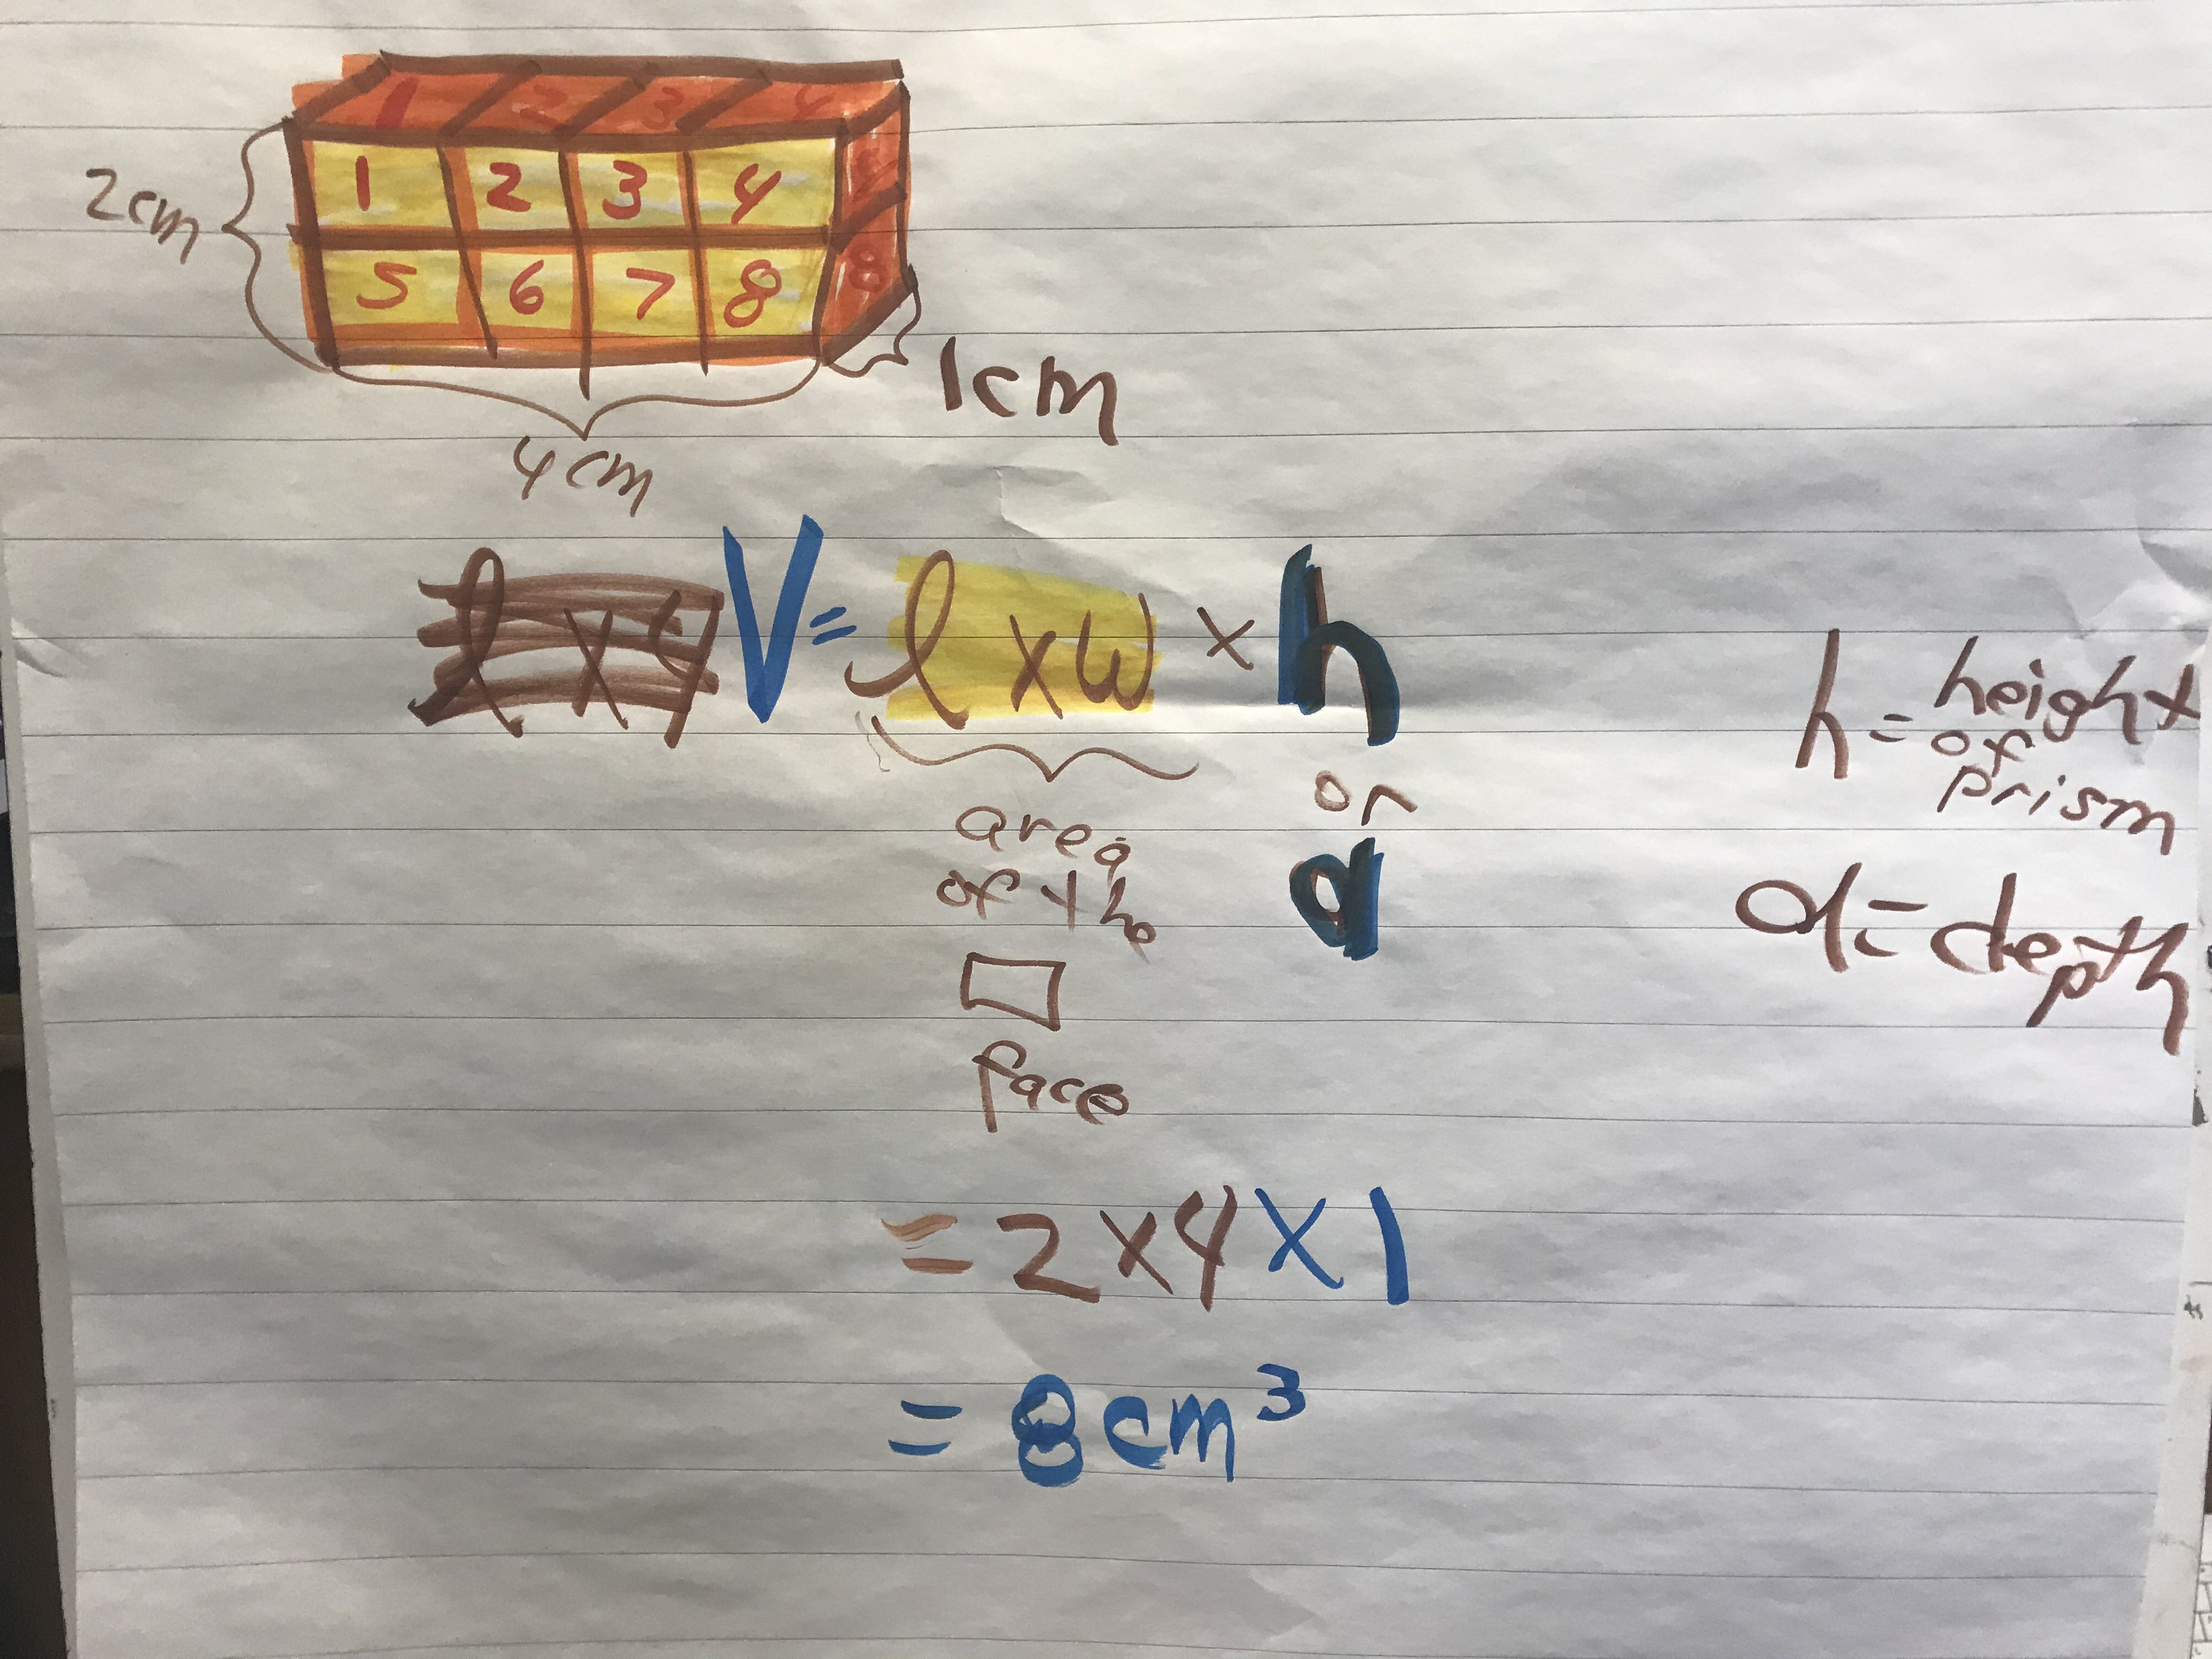 1 2 3 4
2cm
1 2 3 4
5 6 7 8 8
1cm
4cm
l x 4
V = l x w x h
or
d
area
of the
face
h = height
of
prism
d = depth
= 2 x 4 x 1
= 8 cm³